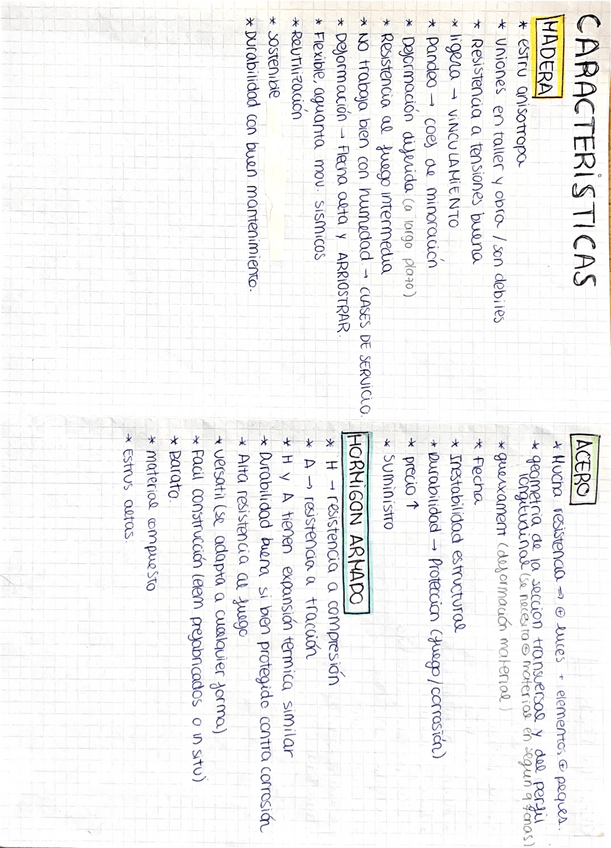 CARACTERÍSTICAS
MADERA
* estru anisotropa
* Uniones en taller y obra / son debiles
* Resistencia a tensiones buena
* ligera → VINCULAMIENTO
* Pandeo → coef de minoración
* Deformación diferida (a largo plazo)
* Resistencia al fuego intermedia
* No trabaja bien con humedad → CLASES DE SERVICIO.
* Deformación → Flecha alta y ARRIOSTRAR.
* Flexible, aguanta mov. sísmicos
* Reutilización
* Sostenible
* Durabilidad con buen mantenimiento.
ACERO
* Mucha resistencia → ⊕ luces + elementos ⊕ peques.
* geometría de la sección transversal y del perfil
longitudinal (se necesita ⊕ material en según q zonas)
(deformación material)
* Flecha
* Inestabilidad estructural
* Durabilidad → Protección (fuego/corrosión)
* precio ↑
* Suministro
HORMIGON ARMADO
* H → resistencia a compresión
* A → resistencia a tracción
* H y A tienen expansión térmica similar
* Durabilidad buena si bien protegido contra corrosión
* Alta resistencia al fuego
* versatil (se adapta a cualquier forma)
* Facil construcción (elem prefabricados o in situ)
* Barato.
* material compuesto
* Estrus altas.